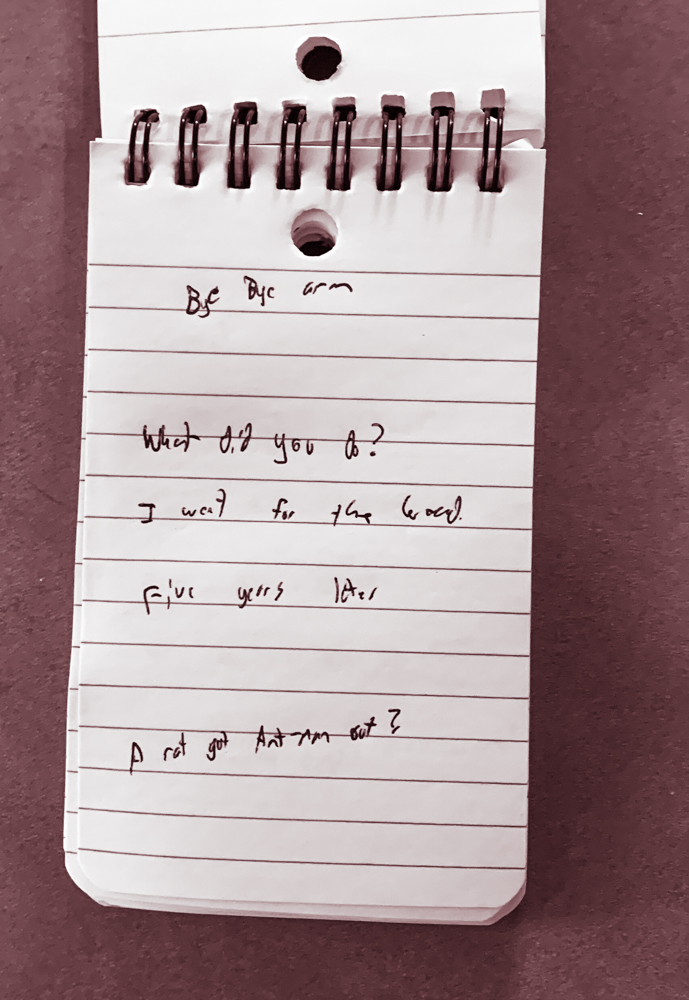 Bye Bye arm
What did you do?
I went for the head.
Five years later
A rat got Ant-man out?